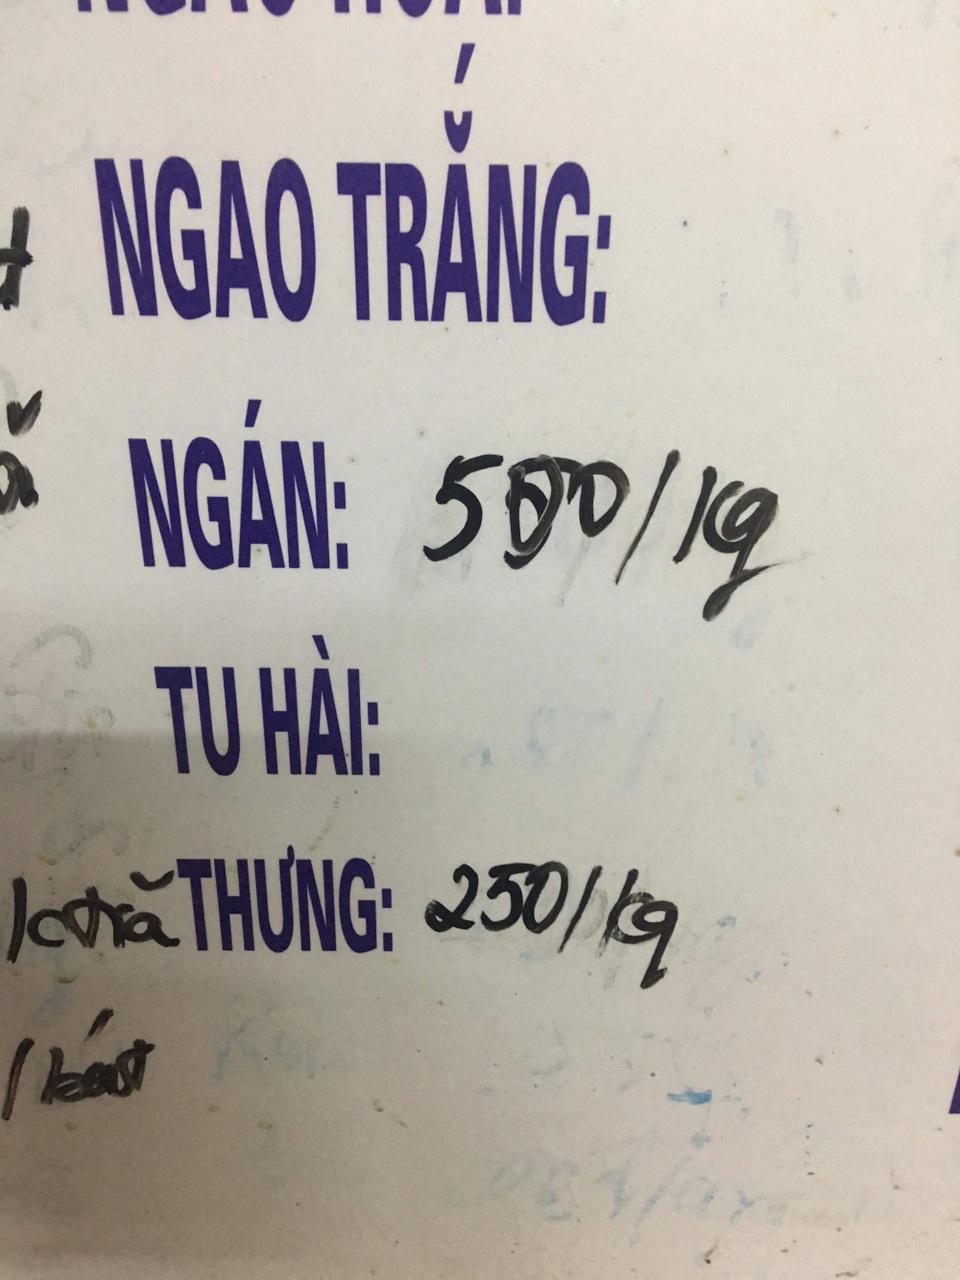 NGAO TRẮNG:
NGÁN: 500/kg
TU HÀI:
THƯNG: 250/kg